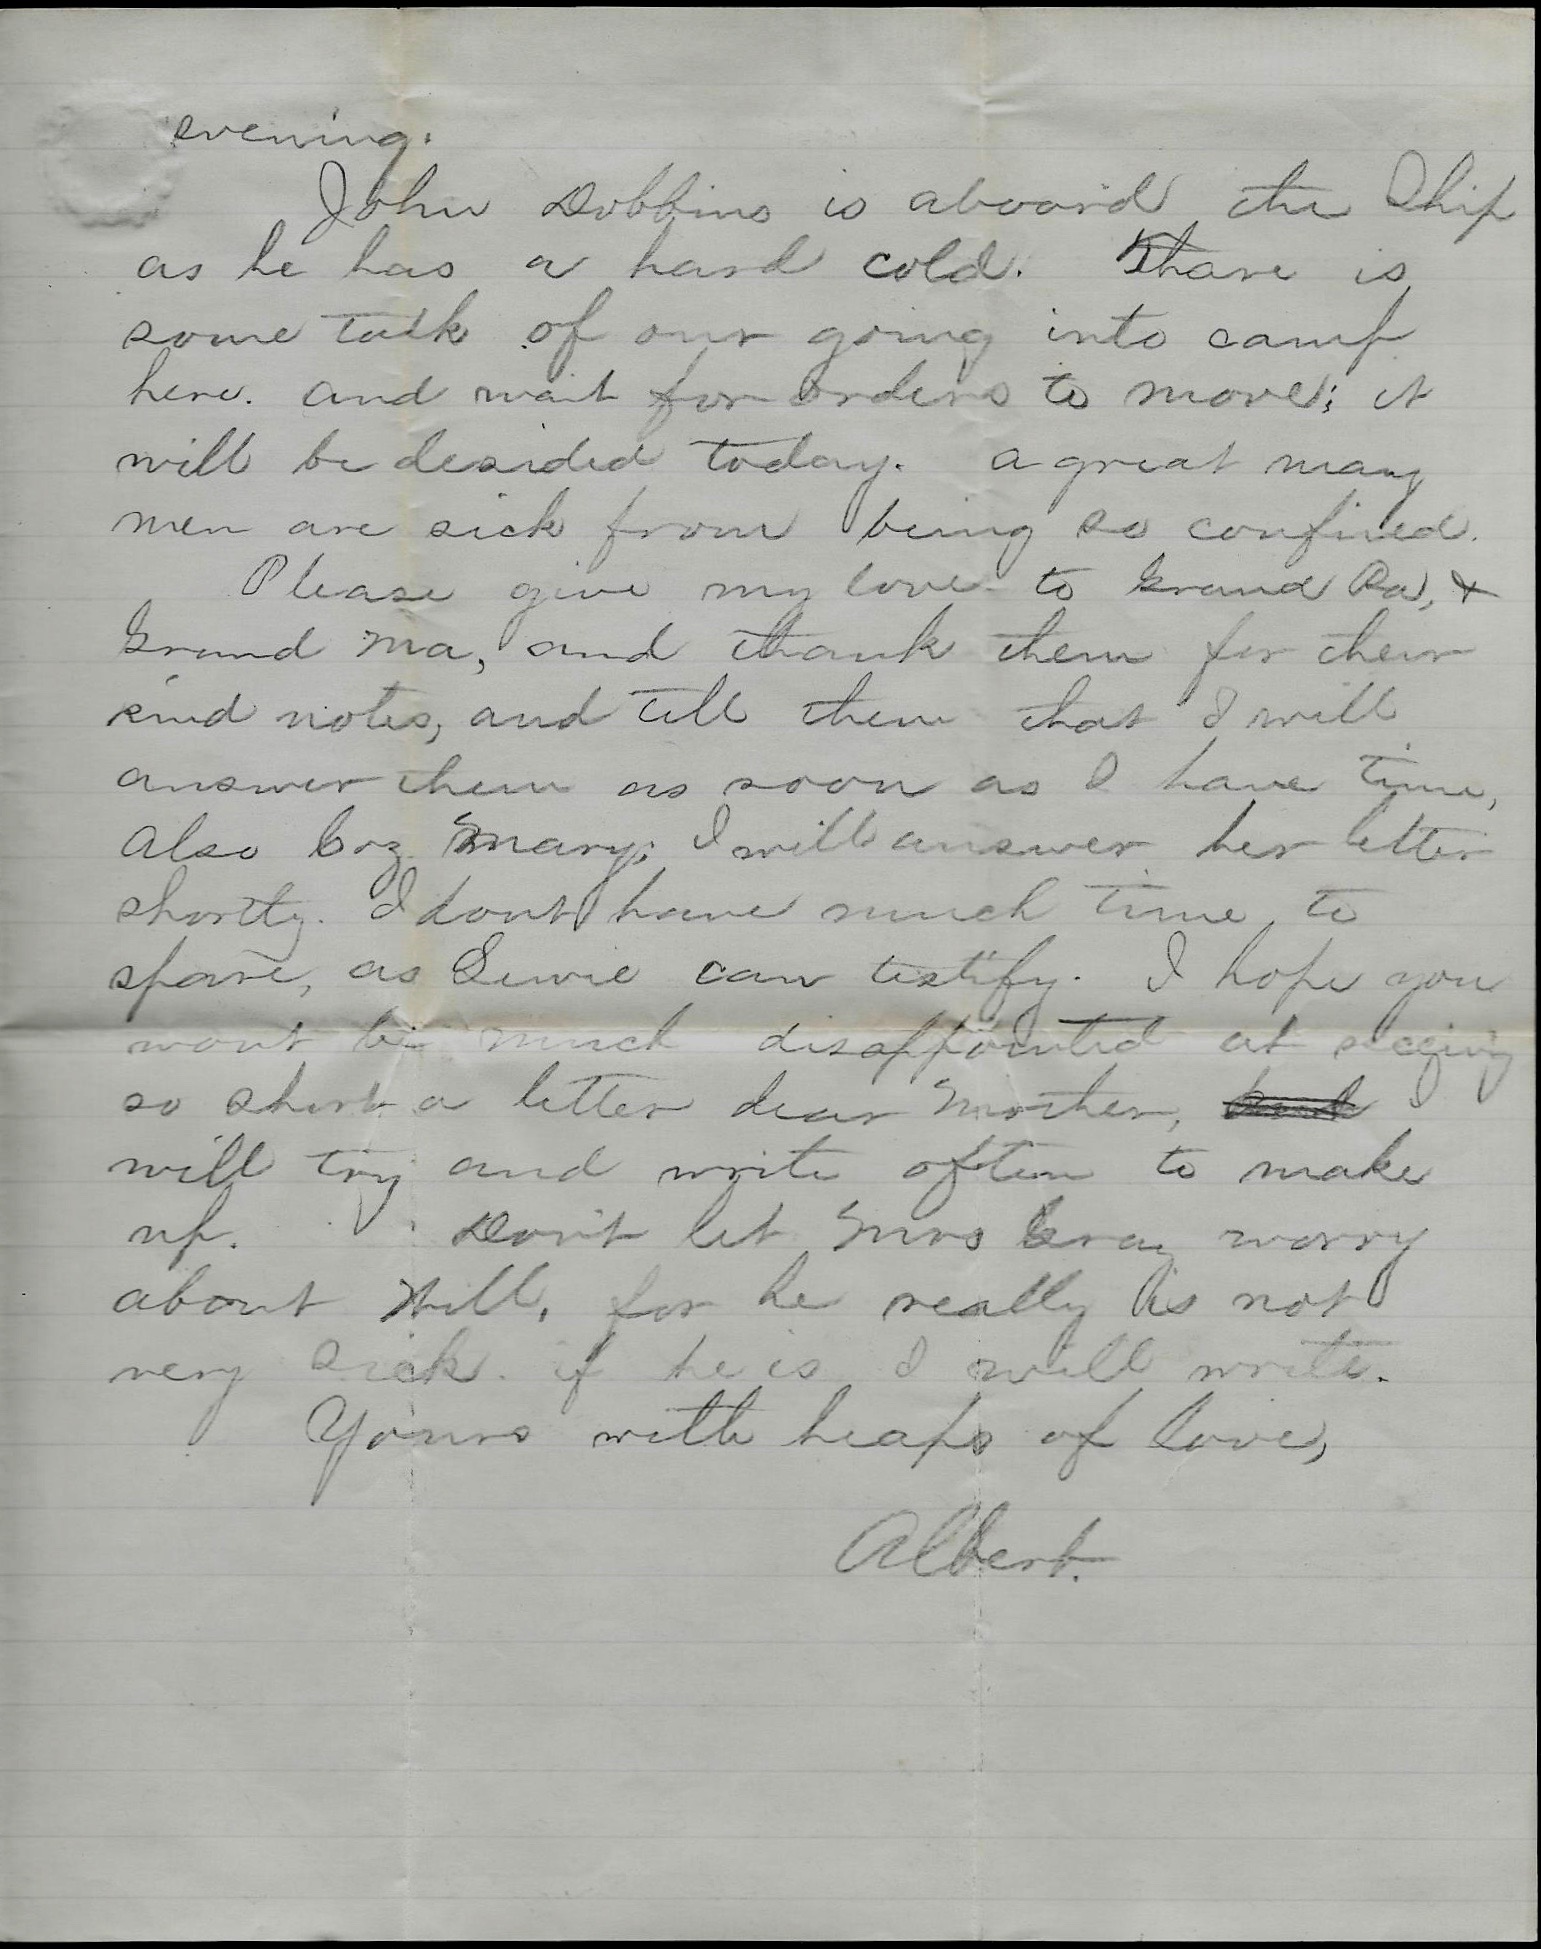 evening.
John Dobbins is aboard the Ship
as he has a hard cold. Thare is
some talk of our going into camp
here. and wait for orders to move; it
will be desided today. a great many
men are sick from being so confined.
Please give my love to Grand Pa, &
Grand Ma, and thank them for their
kind notes, and tell them that I will
answer them as soon as I have time,
also Coz Mary; I will answer her letter
shortly. I dont have much time to
spare, as Lewie can testify. I hope you
wont be much disappointed at
so short a letter dear Mother, I
will try and write often to make
up. Don't let Mrs Gray worry
about Will, for he really is not
very sick. if he is I will write.
Yours with heaps of love,
Albert.